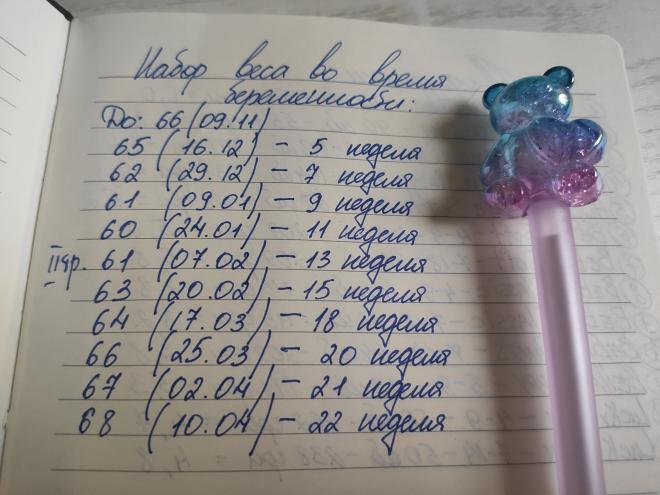 Набор веса во время
беременности:
До: 66 (09.11)
65 (16.12) - 5 неделя
62 (29.12) - 7 неделя
61 (09.01) - 9 неделя
60 (24.01) - 11 неделя
IIтр. 61 (07.02) - 13 неделя
63 (20.02) - 15 неделя
64 (17.03) - 18 неделя
66 (25.03) - 20 неделя
67 (02.04) - 21 неделя
68 (10.04) - 22 неделя